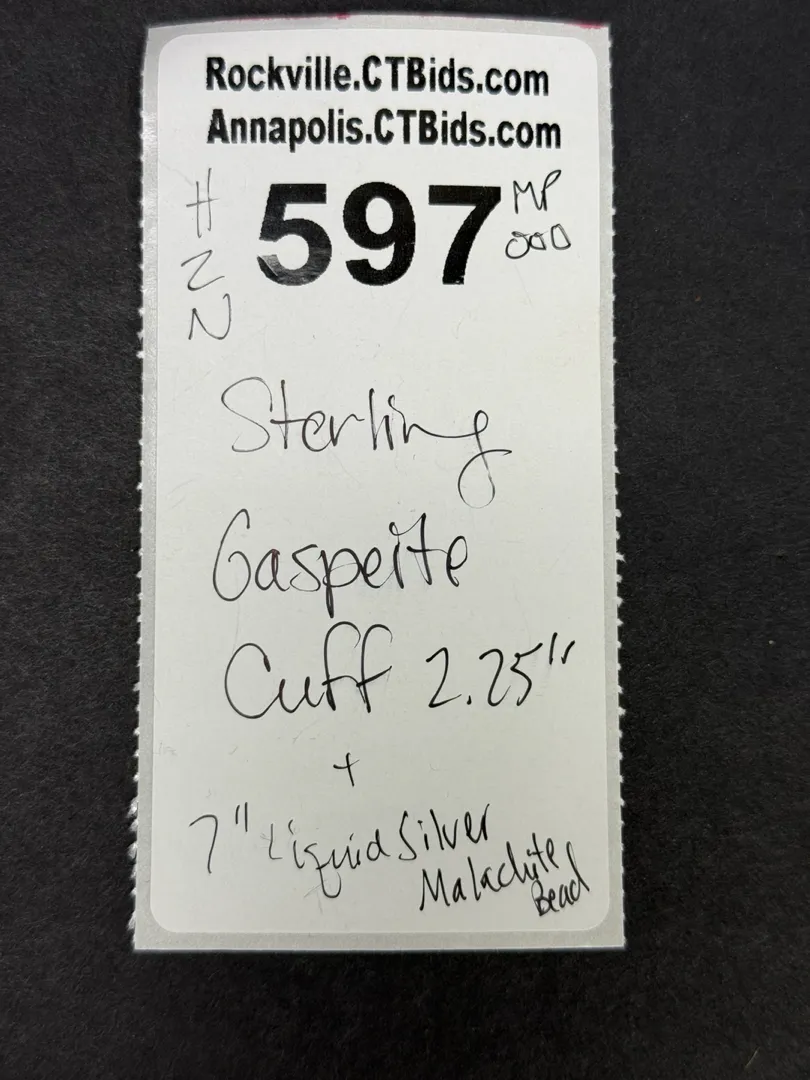 Rockville.CTBids.com
Annapolis.CTBids.com
# 597 MP
2 000
N
Sterling
Gaspeite
Cuff 2.25"
+
7" Liquid Silver
Malachite
Bead